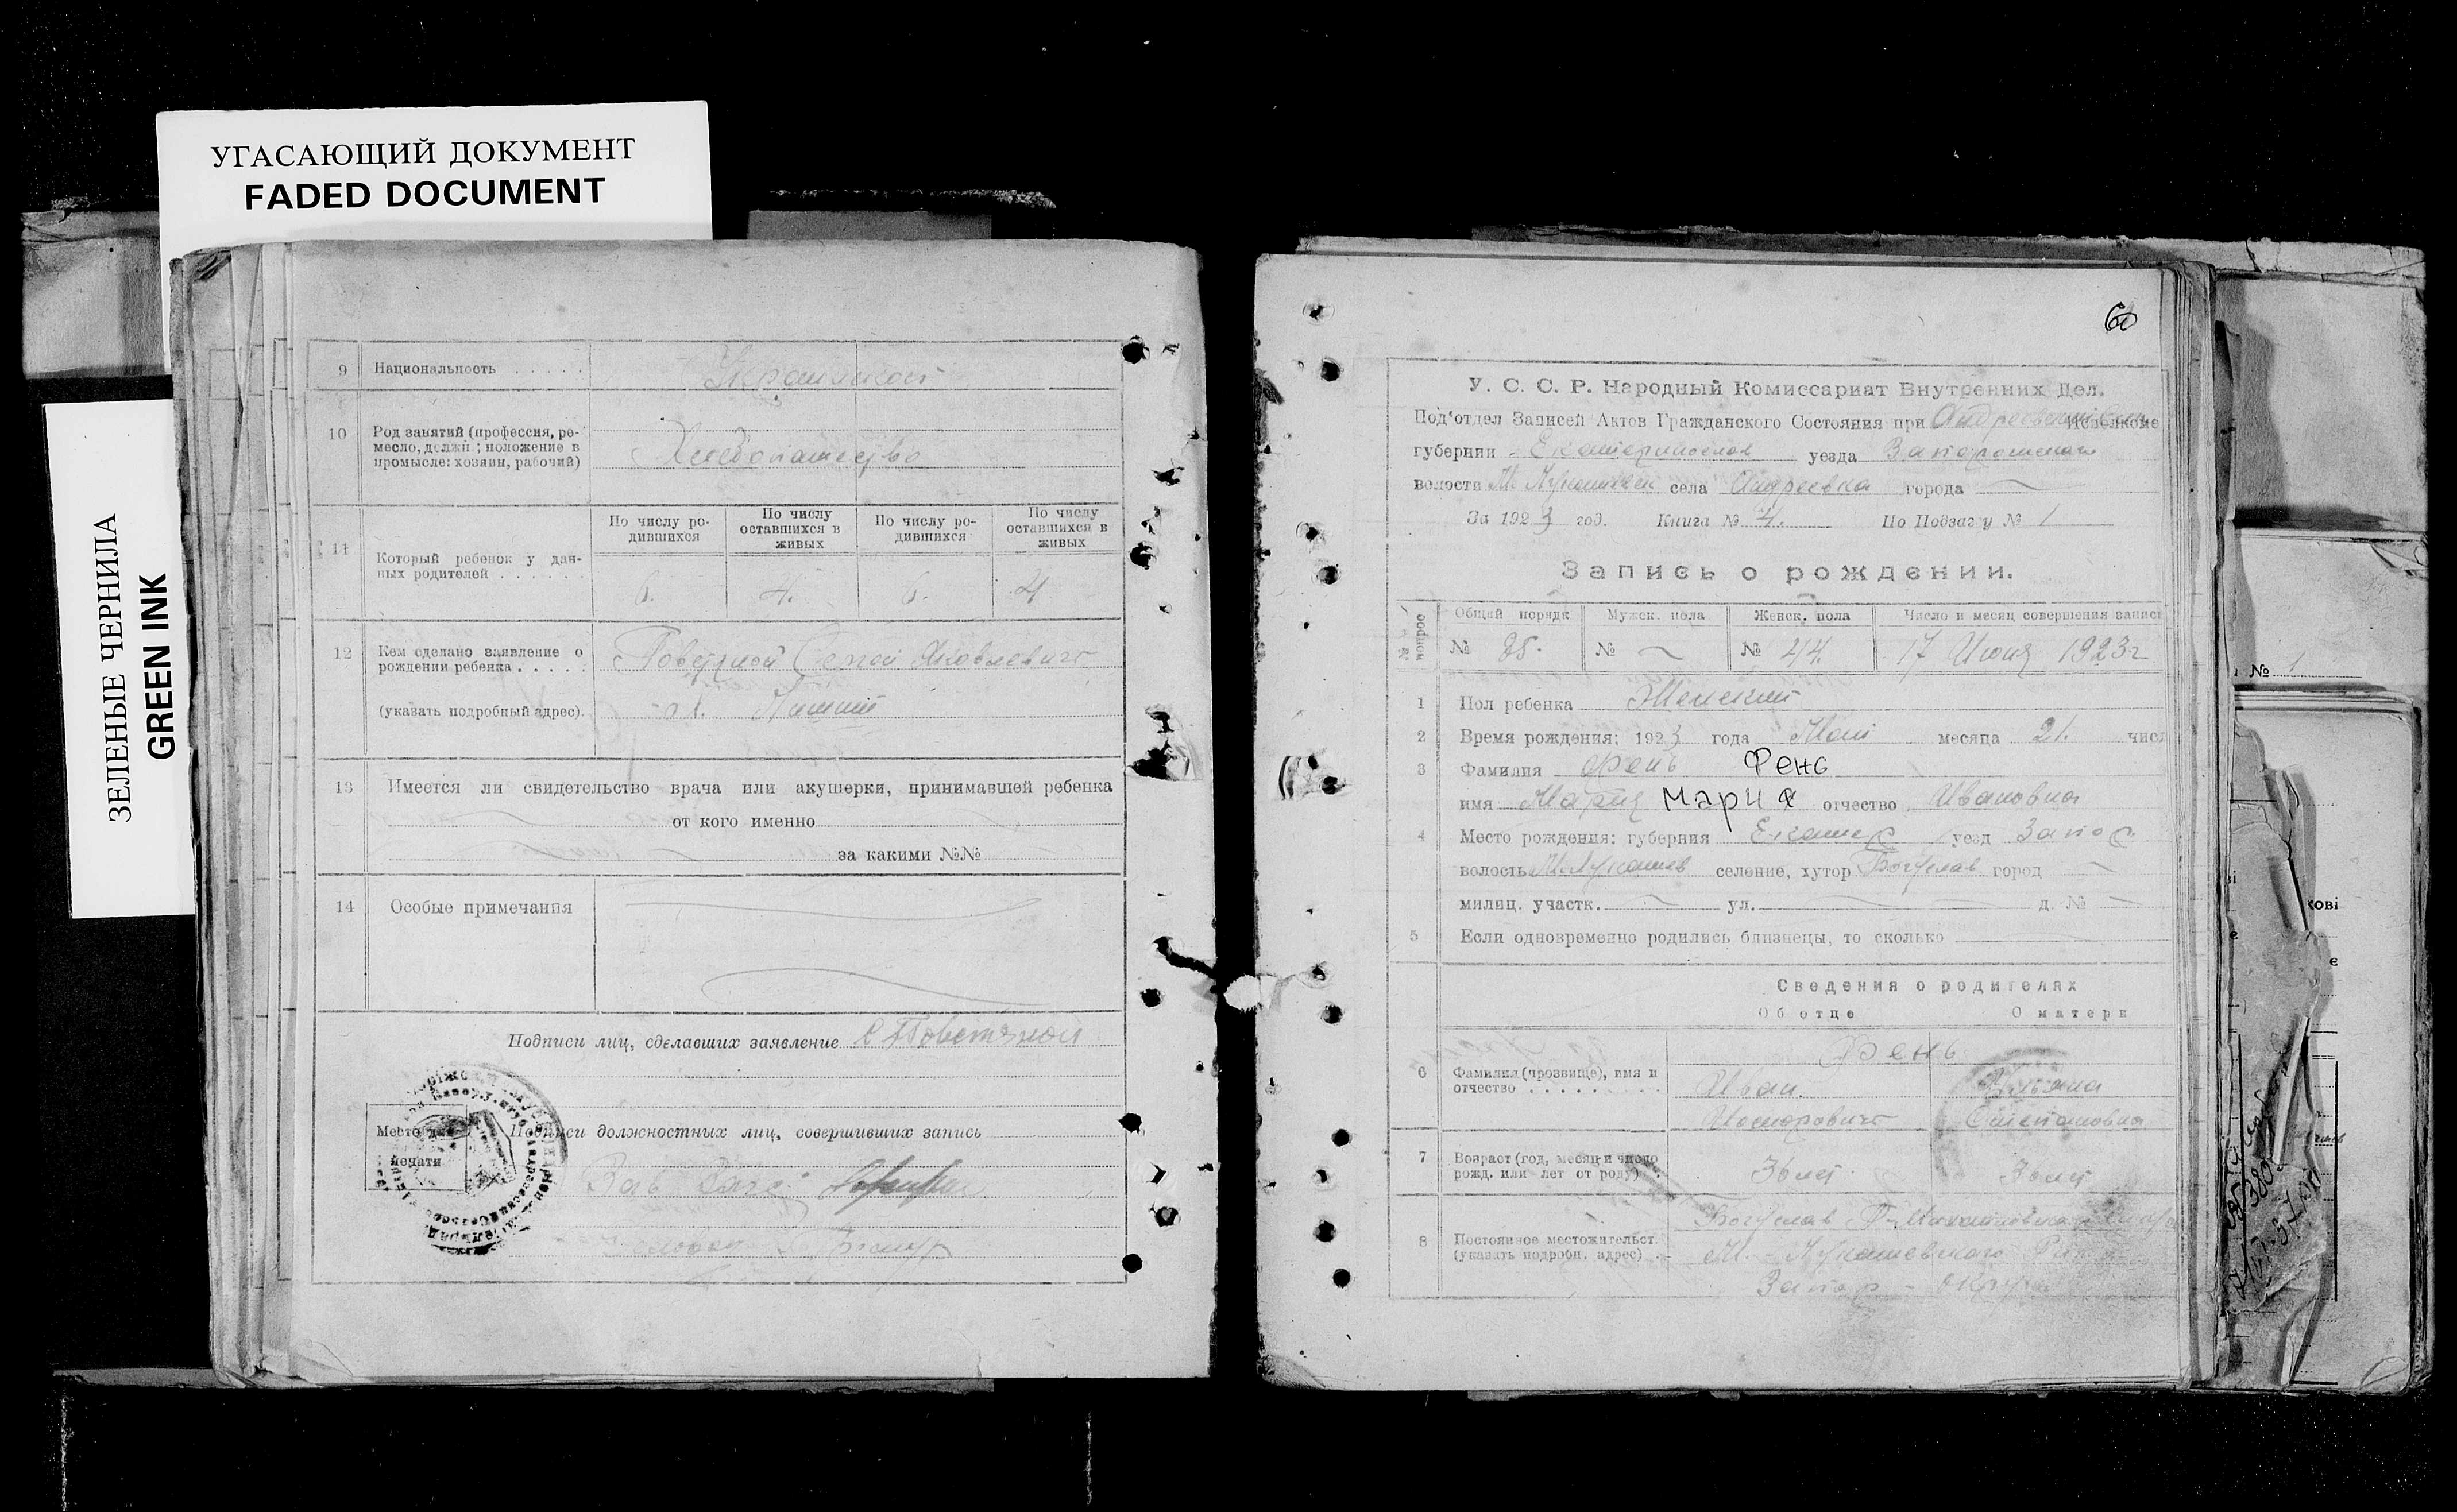 УГАСАЮЩИЙ ДОКУМЕНТ
FADED DOCUMENT
ЗЕЛЕНЫЕ ЧЕРНИЛА
GREEN INK
9 Национальность . . . . .
10 Род занятий (профессия, ре-
месло, должн; положение в
промысле: хозяин, рабочий)
Хлебопашество
11 Который ребенок у дан-
ных родителей . . . . . .
По числу ро-
дившихся
По числу
оставшихся в
живых
По числу ро-
дившихся
По числу
оставшихся в
живых
6. 4. 6. 4
12 Кем сделано заявление о
рождении ребенка . . . . .
Повстяной Сергей Яковлевич
(указать подробный адрес).
13 Имеется ли свидетельство врача или акушерки, принимавшей ребенка
от кого именно
за какими №№
14 Особые примечания
Подписи лиц, сделавших заявление С Повстяной
Место для
печати
Подписи должностных лиц, совершивших запись
60
У. С. С. Р. Народный Комиссариат Внутренних Дел.
Под'отдел Записей Актов Гражданского Состояния при Исполкоме
губернии Екатеринослав уезда Запорожского
волости села Андреевка города
За 1923 год. Книга № 4. По Подзагу № 1
Запись о рождении.
№№ вопрос
Общий порядк Мужск. пола Женск. пола Число и месяц совершения записи
№ 85. № № 44. 17 Июня 1923 г
1 Пол ребенка Женский
2 Время рождения: 1923 года Мая месяца 21. числ
3 Фамилия Фень Фень
имя Мария Мария отчество Ивановна
4 Место рождения: губерния Екатер уезд Запор
волость селение, хутор Богуслав город
милиц. участк. ул. д. №
5 Если одновременно родились близнецы, то сколько
Сведения о родителях
Об отце О матери
6 Фамилия (прозвище), имя и
отчество . . . . . . . . .
Фень
Иван
Степановна
7 Возраст (год, месяц и число
рожд. или лет от роду) .
8 Постоянное местожительст.
(указать подробн. адрес) .
Богуслав
Запор - округ
№ 1